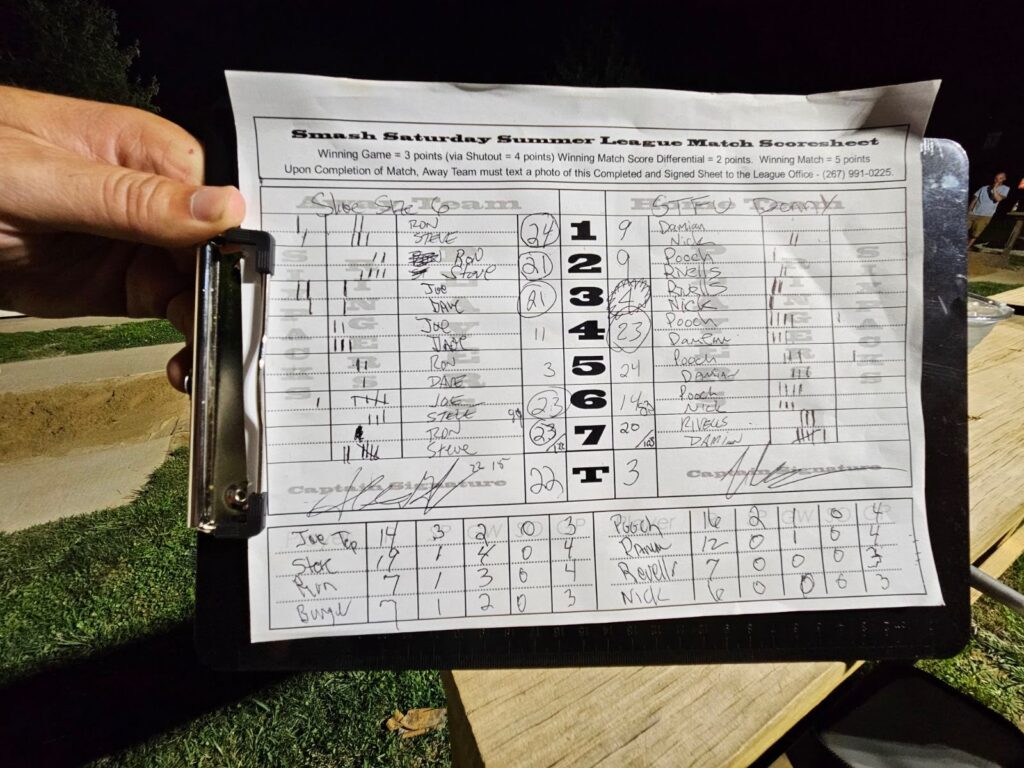 Smash Saturday Summer League Match Scoresheet
Winning Game = 3 points (via Shutout = 4 points) Winning Match Score Differential = 2 points. Winning Match = 5 points
Upon Completion of Match, Away Team must text a photo of this Completed and Signed Sheet to the League Office - (267) 991-0225.
Away Team Home Team
RON 24 1 9 Damian
STEVE Nick
Ron 21 2 9 Pooch
Steve Rivells
Joe 21 3 4 Rivells
DAVE Nick
Joe 11 4 23 Pooch
Dave Damian
RON 3 5 24 Pooch
DAVE DAMIAN
JOE 23 6 14 Pooch
STEVE Nick
RON 23 7 20 RIVELLS
Steve DAMIAN
22 T 3
Captain Signature Captain Signature
Joe 14 3 2 0 3 Pooch 16 2 0 4
Steve 19 1 4 0 4 12 0 1 0 4
Ron 7 1 3 0 4 Rovells 7 0 0 0 3
Burger 7 1 2 0 3 NICK 6 0 0 0 3